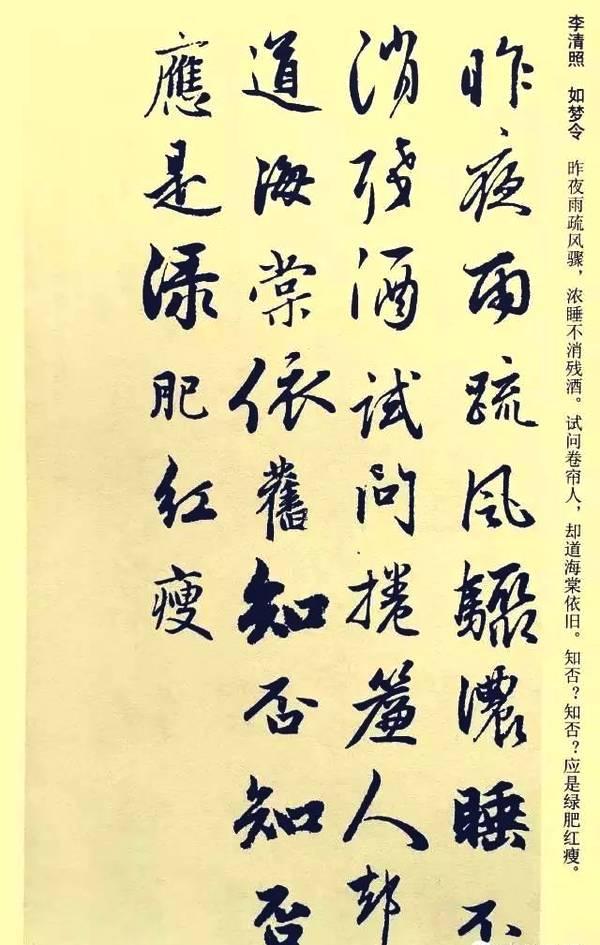 李清照 如梦令 昨夜雨疏风骤，浓睡不消残酒。试问卷帘人，却道海棠依旧。知否？知否？应是绿肥红瘦。
昨夜雨疏风驟濃睡不
消残酒試問捲簾人却
道海棠依舊知否知否
應是渌肥红瘦